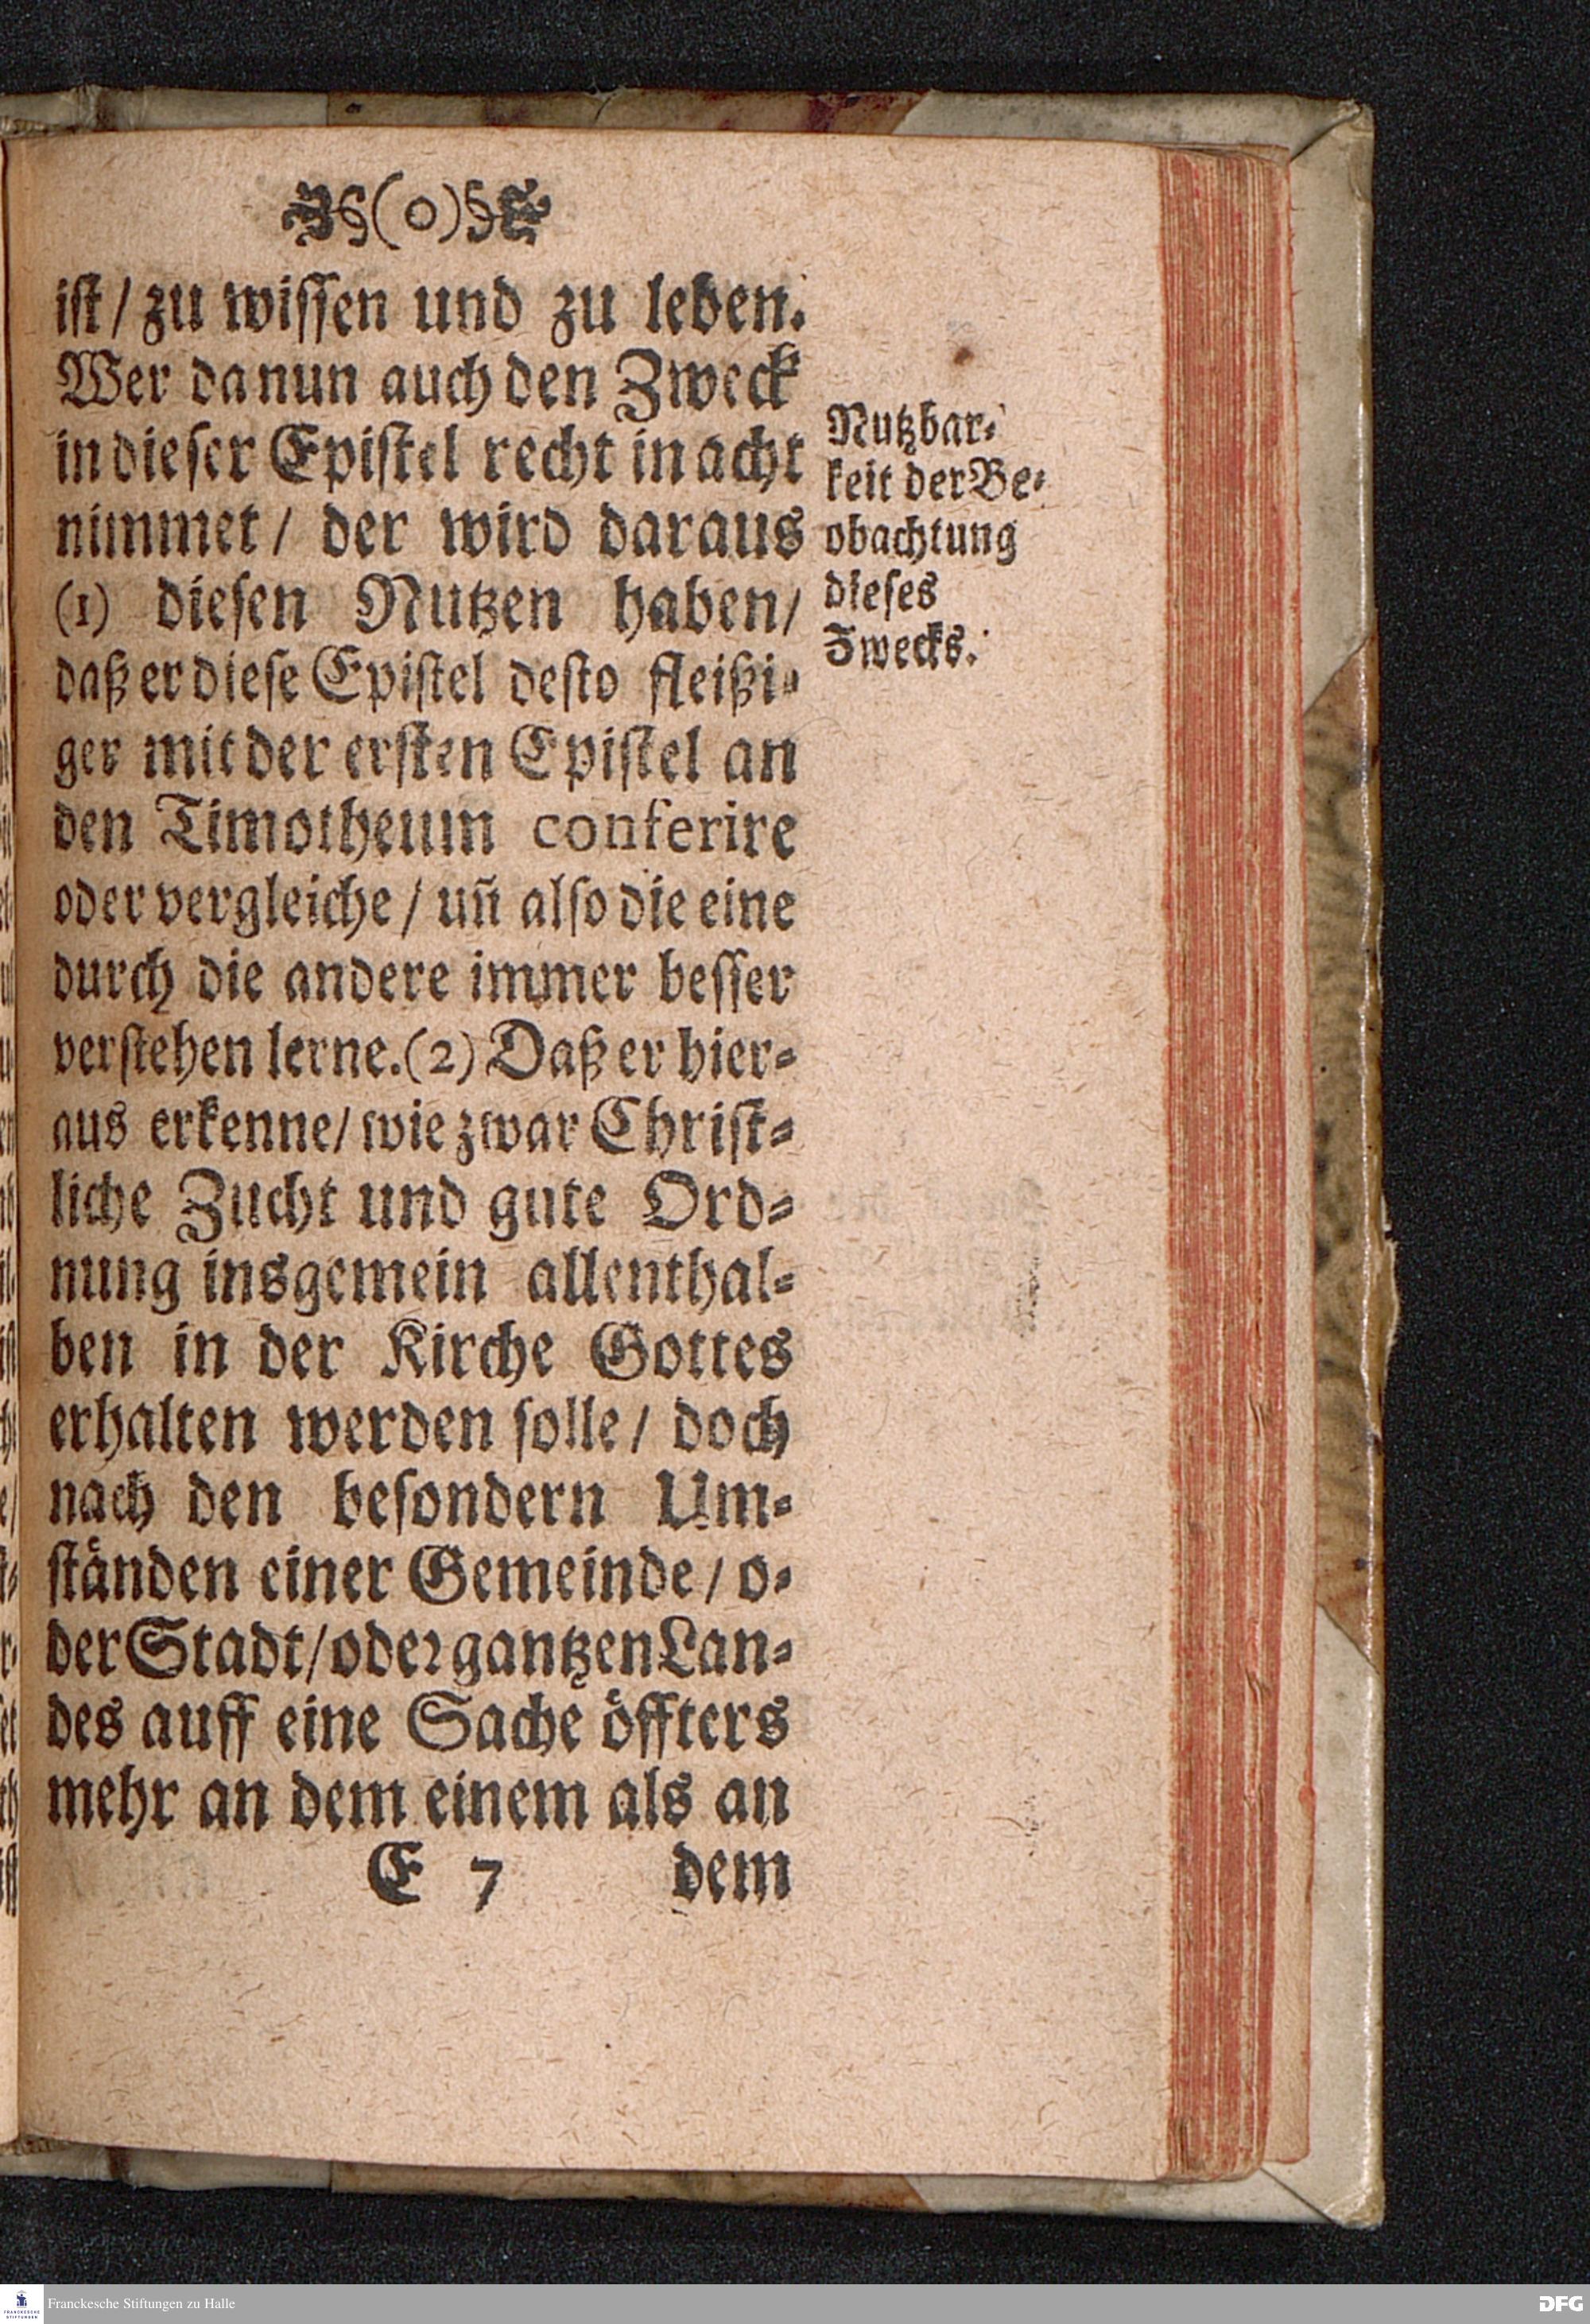 (0)
ist / zu wissen und zu leben.
Wer da nun auch den Zweck
in dieser Epistel recht in acht
nimmet / der wird daraus
(1) diesen Nutzen haben /
daß er diese Epistel desto fleißi-
ger mit der ersten Epistel an
den Timotheum conferire
oder vergleiche / uñ also die eine
durch die andere immer besser
verstehen lerne. (2) Daß er hier-
aus erkenne / wie zwar Christ-
liche Zucht und gute Ord-
nung insgemein allenthal-
ben in der Kirche Gottes
erhalten werden solle / doch
nach den besondern Um-
ständen einer Gemeinde / o-
der Stadt / oder gantzen Lan-
des auff eine Sache öffters
mehr an dem einem als an
E 7 dem
Nutzbar-
keit der Be-
obachtung
dieses
Zwecks.
FRANCKESCHE
STIFTUNGEN
Franckesche Stiftungen zu Halle
DFG